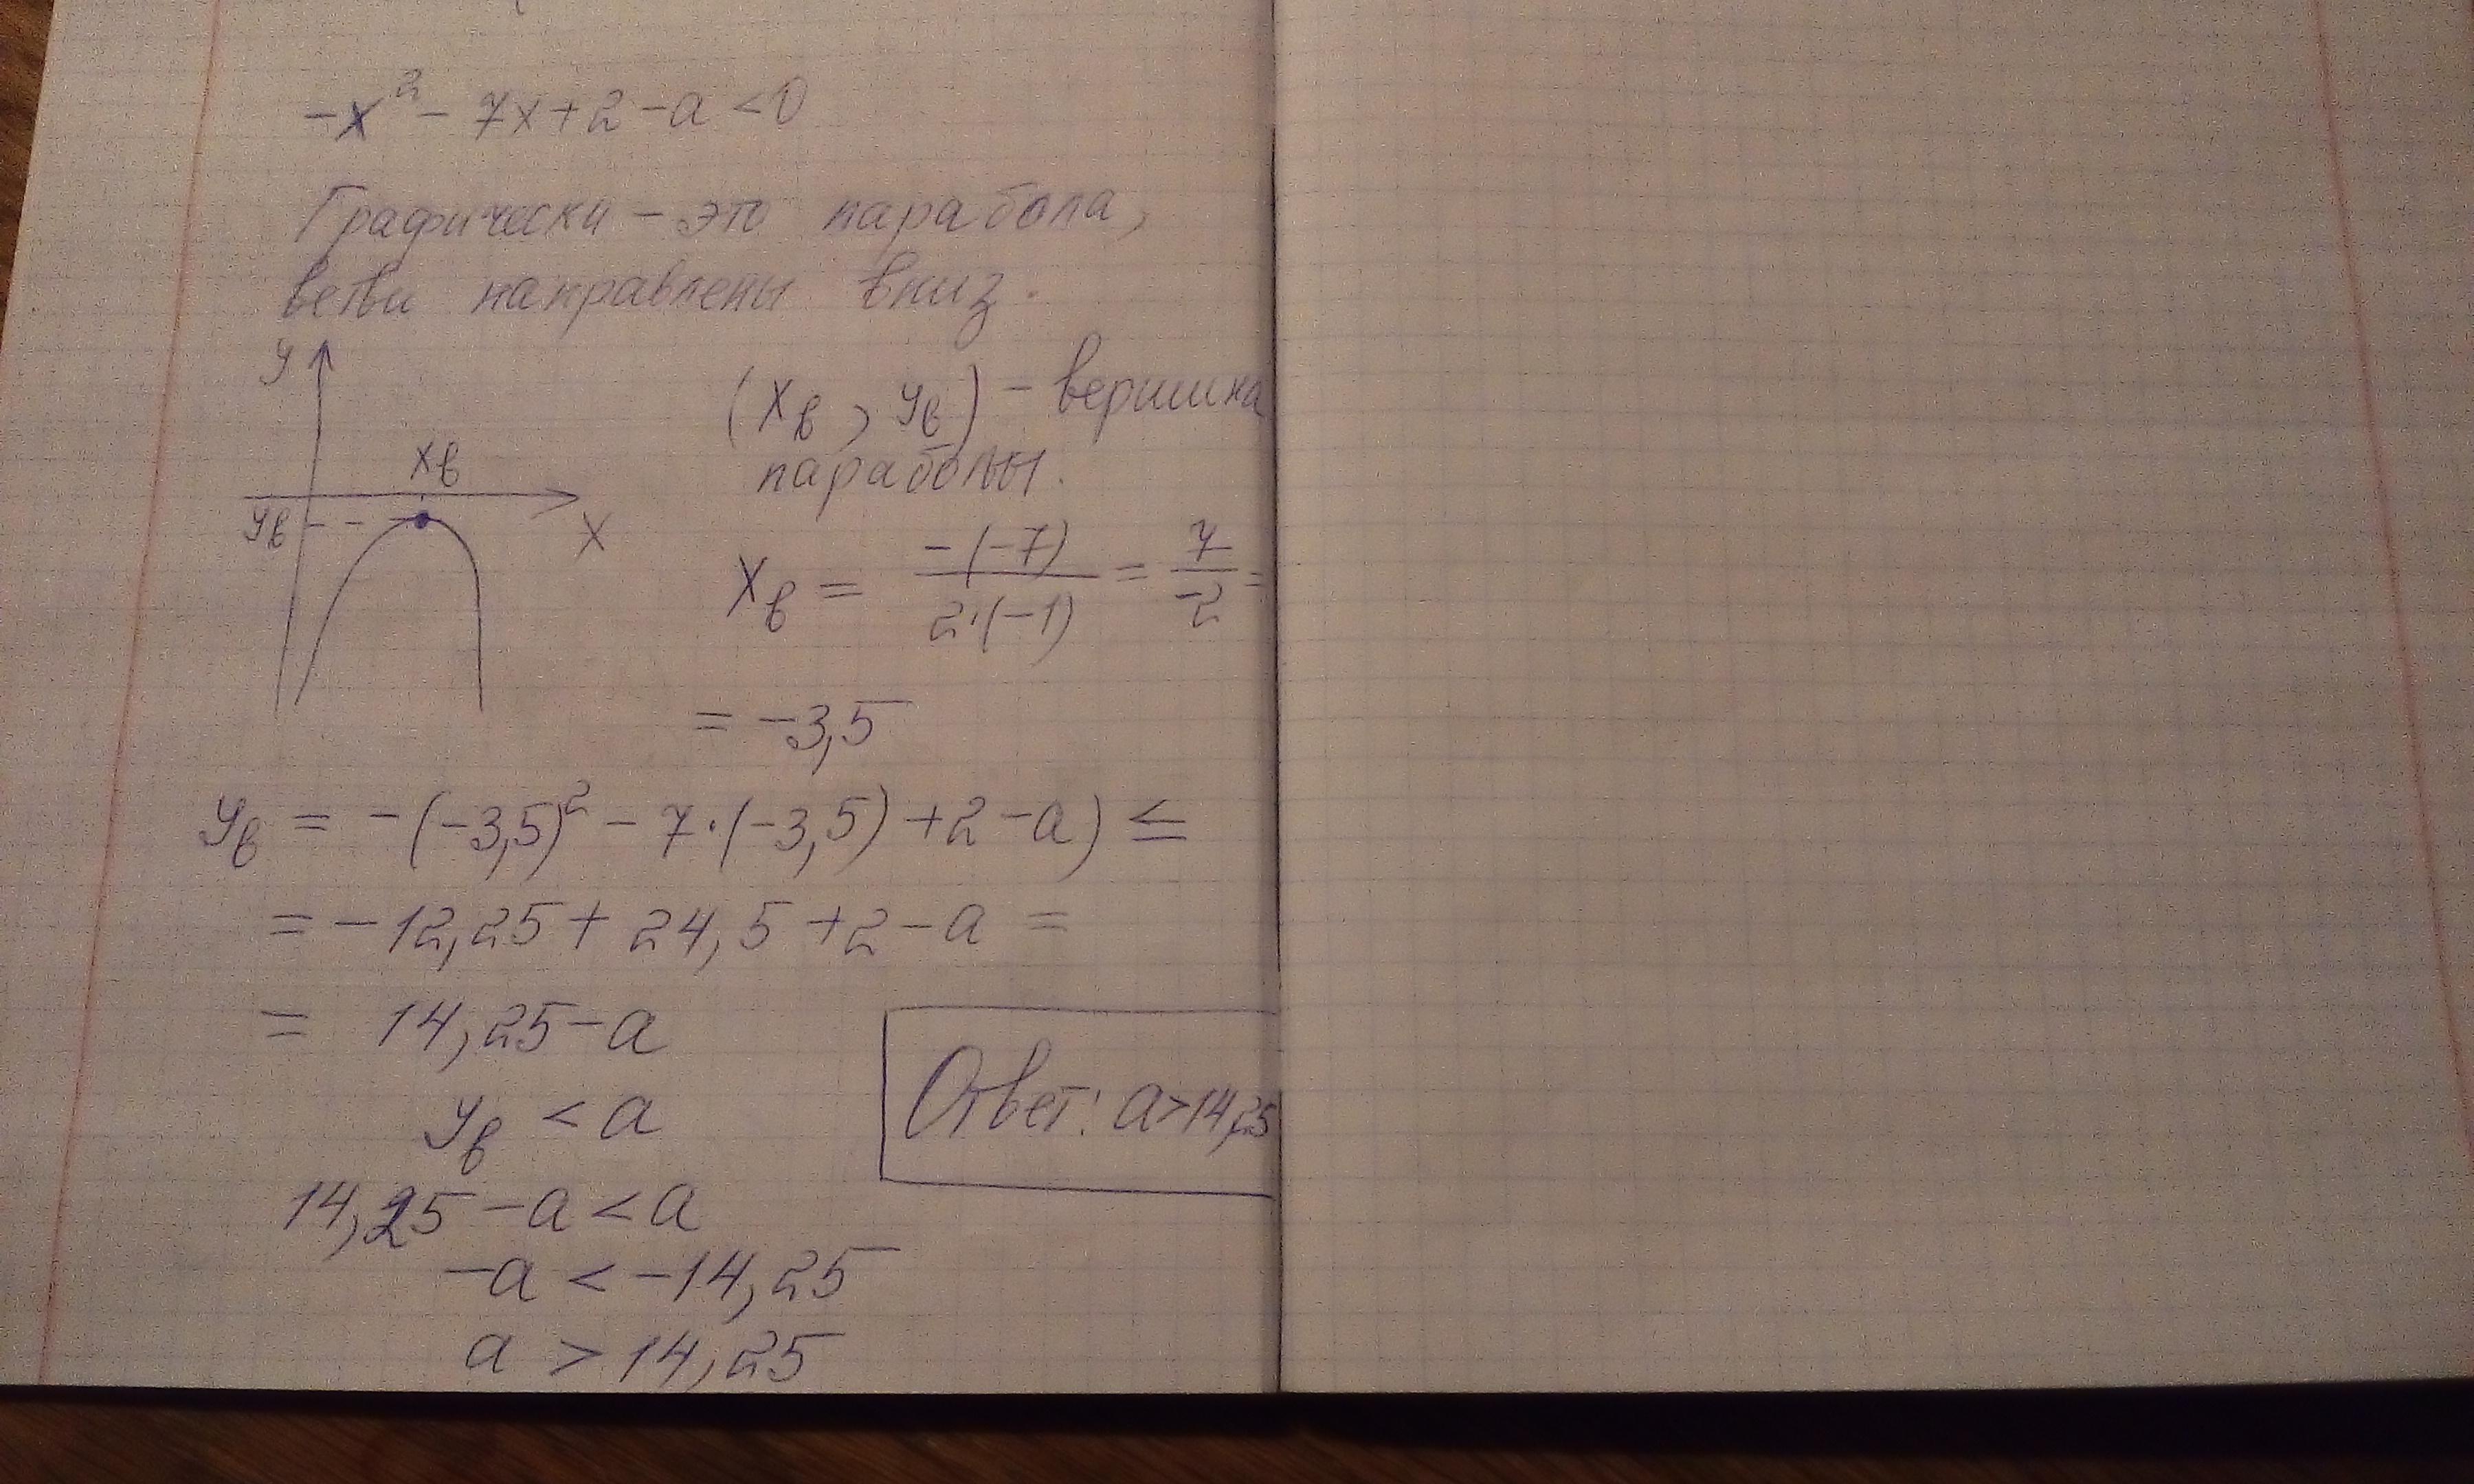 -x² - 7x + 2 - a < 0
Графически - это парабола,
ветви направлены вниз.
y
xв
yв
x
(xв, yв) - вершина
параболы.
xв = -(-7)/2·(-1) = 7/-2 =
= -3,5
yв = -(-3,5)² - 7·(-3,5) + 2 - a) =
= -12,25 + 24,5 + 2 - a =
= 14,25 - a
yв < a
14,25 - a < a
-a < -14,25
a > 14,25
Ответ: a > 14,25